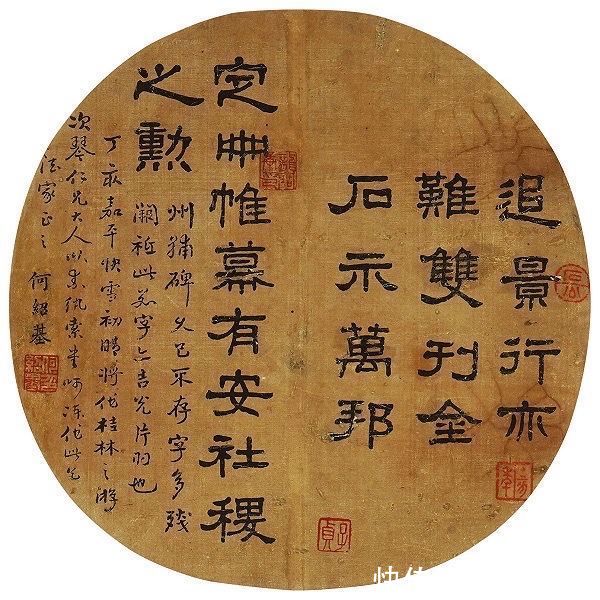 追景行亦
難雙刊金
石示萬邦
定冊帷幕有安社稷
之勳
州輔碑久已不存字多殘
闕祗此字亦吉光片羽也
丁亥嘉平快雪初晴將作桂林之游
次琴仁兄大人以素紈索書呵凍作此乞
法家正之 何紹基
子貞